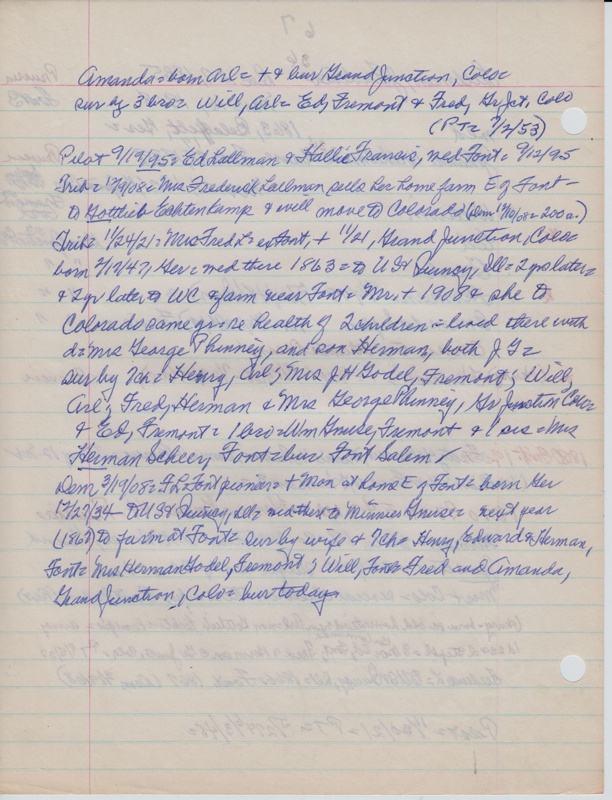 Amanda = born Arl = + & bur Grand Junction, Colo =
sur by 3 bro = Will, Arl = Ed, Fremont & Fred, Gr Jct, Colo
(PT = 7/2/53)
Pilot 9/19/95 = Ed Lallman & Hallie Francis, med Font = 9/12/95
Trib = 1/9/08 = Mrs Frederick Lallman sells her home farm E of Font =
to Gottlieb Echtenkamp & will move to Colorado (Dem 1/10/08 = 200 a =)
Trib = 11/24/21 = Mrs Fred L = ex Font, + 11/21, Grand Junction, Colo =
born 2/17/47, Ger = med there 1863 = to US & Quincy, Ill = 2 yrs later =
& 2 yr later to WC & farm near Font = Mr + 1908 & she to
Colorado same yr = re health of 2 children = lived there with
d = Mrs George Phinney, and son Herman, both J G =
sur by 7 ch = Henry, Arl; Mrs J H Godel, Fremont; Will,
Arl; Fred, Herman & Mrs George Phinney, Gr Junction Colo
& Ed, Fremont = 1 bro = Wm Gnuse, Fremont & 1 sis = Mrs
Herman Scheer, Font = bur Font Salem
Dem 3/19/08 = F L Font pioneer = + Mon at home E of Font = born Ger
12/27/34 = to US & Quincy, Ill = med there to Minnie Gnuse = next year
(1867) to farm at Font = sur by wife & 7 ch = Henry, Edward & Herman,
Font = Mrs Herman Godel, Fremont; Will, Font = Fred and Amanda,
Grand Junction, Colo = bur today